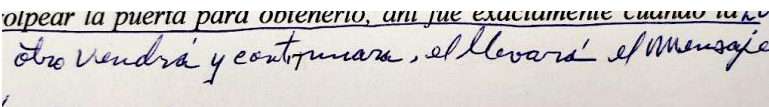 olpear la puerta para obtenerlo, ahí fue exactamente cuando la
otro vendrá y continuara, el llevará el mensaje